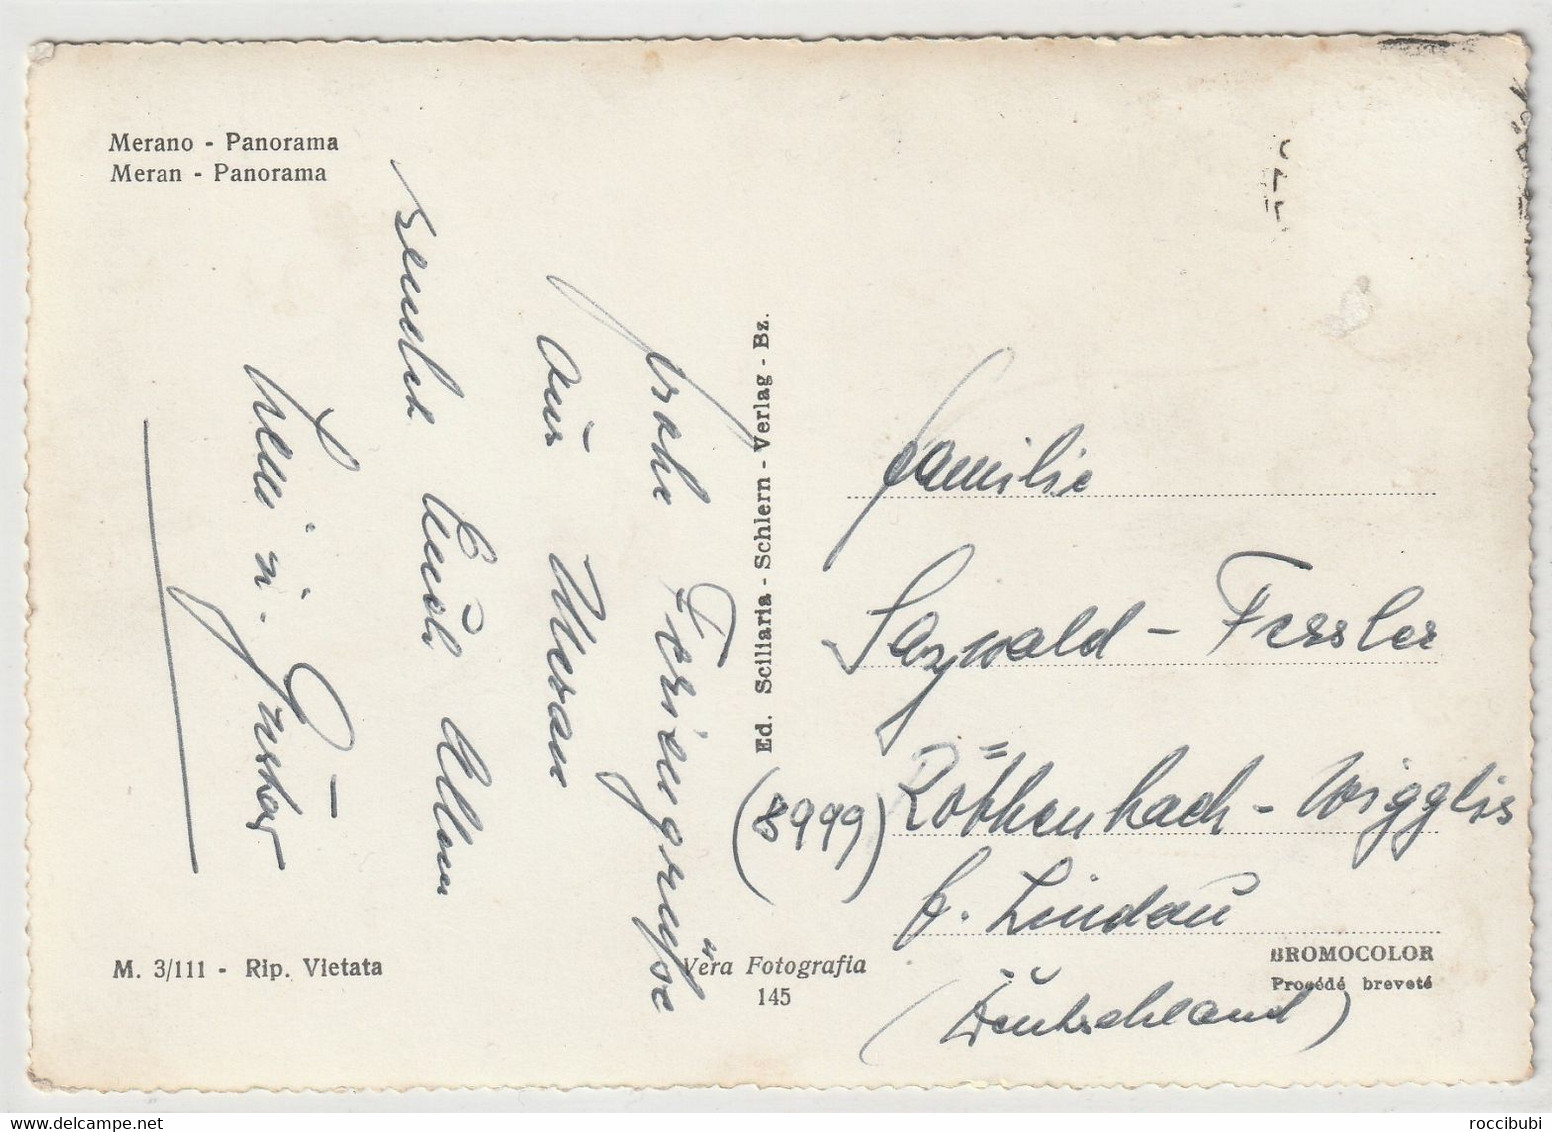 Merano - Panorama
Meran - Panorama
Frohe Feriengrüße
aus Meran
senden Euch Allen
u. Gustav
Ed. Sciliaria - Schlern - Verlag - Bz.
Familie
Sazwald - Fessler
(8999) Röthenbach - Wigglis
b. Lindau
(Deutschland)
M. 3/111 - Rip. Vietata
Vera Fotografia
145
BROMOCOLOR
Procédé breveté
roccibubi